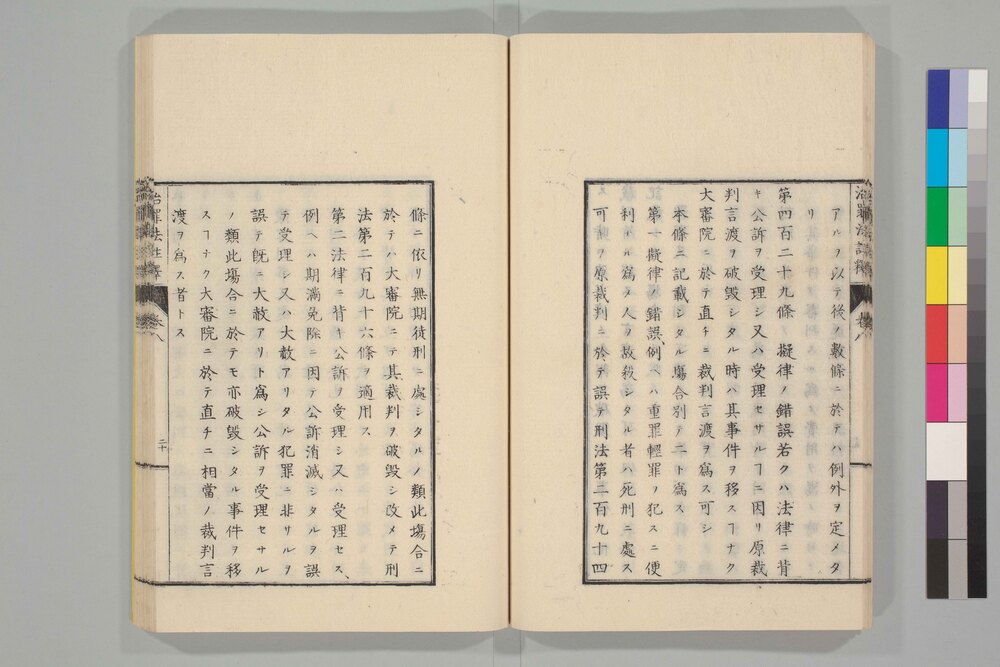 アルヲ以テ後ノ數條ニ於テハ例外ヲ定メタ
リ
第四百二十九條 擬律ノ錯誤若クハ法律ニ背
キ公訴ヲ受理シ又ハ受理セサルヿニ因リ原裁
判言渡ヲ破毀シタル時ハ其事件ヲ移スヿナク
大審院ニ於テ直チニ裁判言渡ヲ爲ス可シ
本條ニ記載シタル塲合別テ二ト爲ス
第一擬律ノ錯誤、例ヘハ重罪輕罪ヲ犯スニ便
利ナル爲メ人ヲ故殺シタル者ハ死刑ニ處ス
可キヲ原裁判ニ於テ誤テ刑法第二百九十四
條ニ依リ無期徒刑ニ處シタルノ類此塲合ニ
於テハ大審院ニテ其裁判ヲ破毀シ改メテ刑
法第二百九十六條ヲ適用ス
第二法律ニ背キ公訴ヲ受理シ又ハ受理セス、
例ヘハ期滿免除ニ因テ公訴消滅シタルヲ誤
テ受理シ又ハ大赦アリタル犯罪ニ非サルヲ
誤テ旣ニ大赦アリト爲シ公訴ヲ受理セサル
ノ類此塲合ニ於テモ亦破毀シタル事件ヲ移
スヿナク大審院ニ於テ直チニ相當ノ裁判言
渡ヲ爲ス者トス
二十